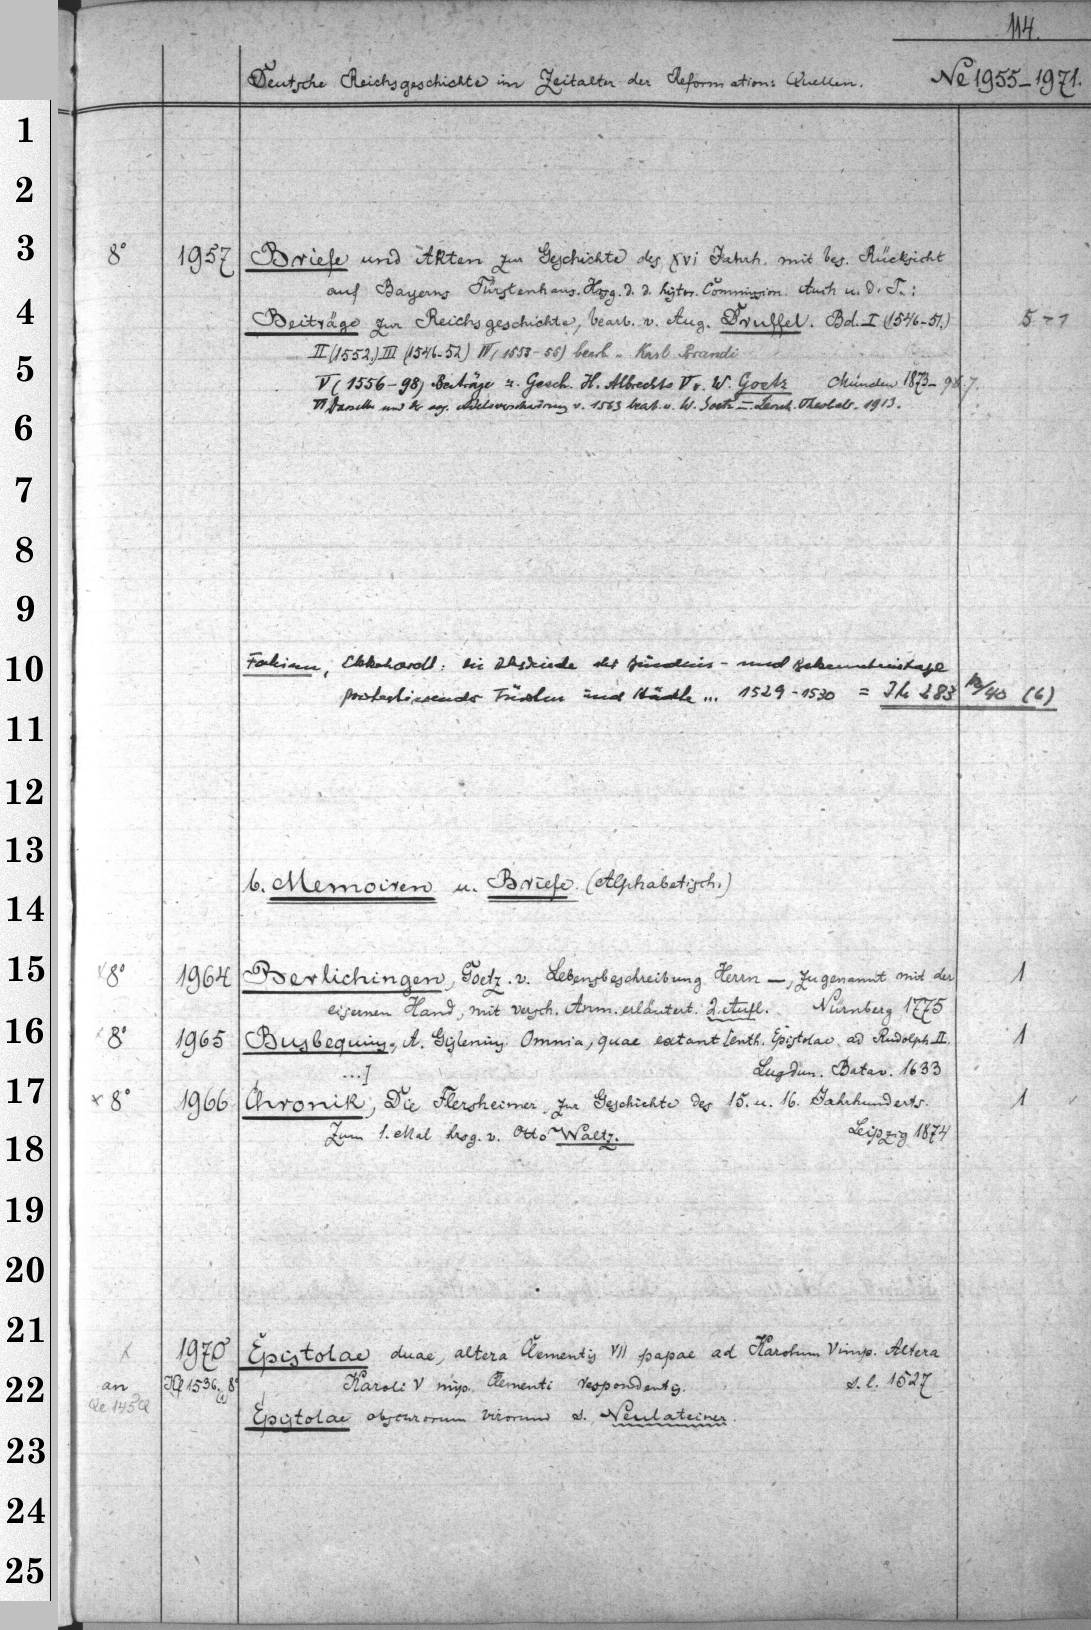 114.
Deutsche Reichsgeschichte im Zeitalter der Reformation: Quellen. Ne 1955-1971.
1
2
3 8° 1957 Briefe und Akten zur Geschichte des XVI Jahrh. mit bes. Rücksicht
auf Bayerns Fürstenhaus. Hrsg. d. d. histor. Commission. Auch u. d. T.:
4 Beiträge zur Reichsgeschichte, bearb. v. Aug. Druffel. Bd. I (1546-51.) 5
II (1552.) III (1546-52) IV, 1553-55) bearb. v. Karl Brandi
5 V (1556-98) Beiträge z. Gesch. H. Albrechts V v. W. Goetz München 1873-
VI v. 1563 bearb. v. W. Goetz - Leonh. Theobald. 1913.
6
7
8
9
10 Fabian, Ekkehardt: Die Abschiede der Bündnis- und Bekenntnistage
protestierender Fürsten und Städte ... 1529-1530 = (6)
11
12
13
b. Memoiren u. Briefe. (Alphabetisch.)
14
15 x8° 1964 Berlichingen, Goetz. v. Lebensbeschreibung Herrn —, zugenannt mit der 1
eisernen Hand, mit versch. Anm. erläutert. 2. Aufl. Nürnberg 1775
16 x8° 1965 Busbequius, A. Gislenius Omnia, quae extant [enth. Epistolae ad Rudolph. II. 1
...] Lugdun. Batav. 1633
17 x8° 1966 Chronik, Die Flersheimer. Zur Geschichte des 15. u. 16. Jahrhunderts. 1
Zum 1. Mal hrsg. v. Otto Waltz. Leipzig 1874
18
19
20
21
x 1970 Epistolae duae, altera Clementis VII papae ad Karolum V imp. Altera
22 an 1536. 8° Karoli V imp. Clementi respondentis. s. l. 1527
Epistolae obscurorum virorum s. Neulateiner.
23
24
25